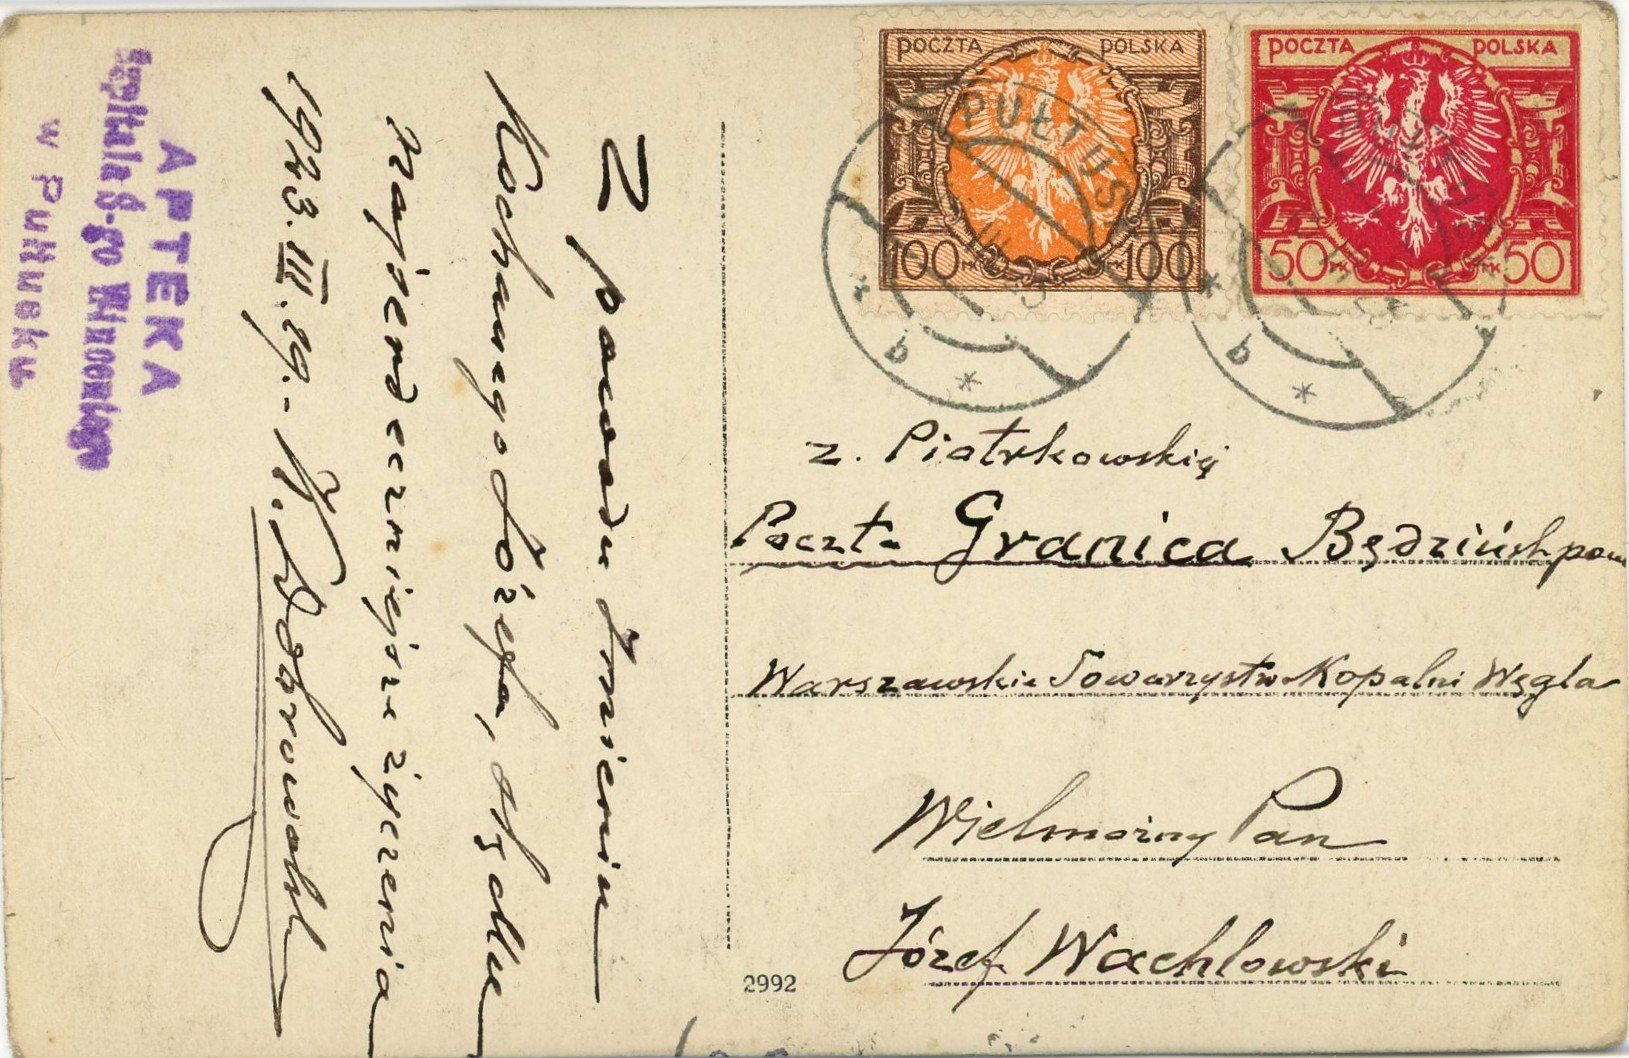 APTEKA
Szpitala Ś-go Wincentego
w Pułtusku.
Z powodu Imienin
Kochanego Józefa, zasyłam
najserdeczniejsze życzenia
1923.III.19.-
POCZTA POLSKA
100 MK 100
POCZTA POLSKA
50 MK 50
PUŁTUSK
b
PUŁTUSK
b
z. Piotrkowskiej
Poczta Granica Będzińsk pow
Warszawskie Towarzystwo Kopalni Węgla
Wielmożny Pan
Józef Wachlowski
2992